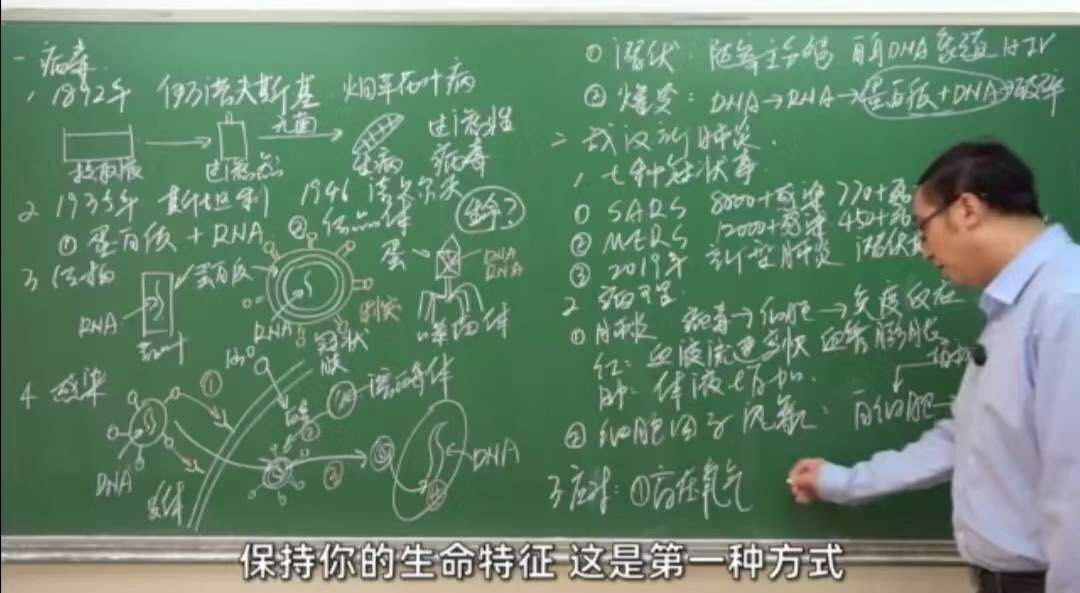 一 病毒
1 1892年 伊万诺夫斯基 烟草花叶病
提取液
过滤
无菌
生病
过滤性
病毒
2 1935年 斯坦利 1946 诺贝尔奖
生命?
① 蛋白质 + RNA ② 结晶体
3 结构
蛋白质
RNA
烟叶
RNA
刺突
冠状
蛋
DNA
RNA
噬菌体
4 感染
①
膜
溶酶体
②
DNA
受体
③
⑤
④
DNA
① 潜伏: 随寄主分裂 前DNA HIV
② 爆发: DNA→RNA→蛋白质+DNA→破碎
二 武汉新肺炎.
1 七种冠状毒
① SARS 8000+感染 770+
② MERS 12000+感染 450+
③ 2019年 新型肺炎 潜伏
2 病理
① 肺炎 病毒→细胞→免疫反应
红: 血液流速变快 血管膨胀
肿: 体液增加.
② 细胞因子风暴: 白细胞→
3 应对: ①高压氧气
保持你的生命特征 这是第一种方式